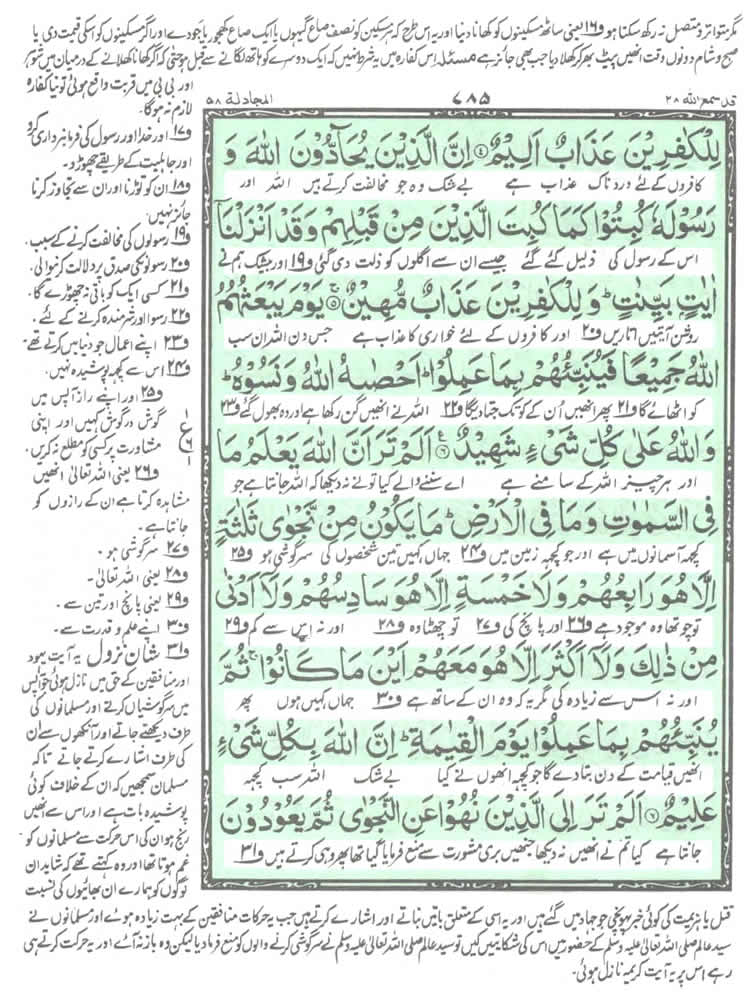 مگر متواتر و متصل نہ رکھ سکتا ہو و۱۶ یعنی ساٹھ مسکینوں کو کھانا دینا اور یہ اس طرح کہ ہر مسکین کو نصف صاع گیہوں یا ایک صاع کھجور یا جو دے اور اگر مسکینوں کو اسکی قیمت دی یا
صبح و شام دونوں وقت انھیں پیٹ بھر کر کھلا دیا جب بھی جائز ہے مسئلہ اس کفارہ میں یہ شرط نہیں کہ ایک دوسرے کو ہاتھ لگانے سے قبل ہو حتیٰ کہ اگر کھانا کھلانے کے درمیان میں شوہر
اور بی بی میں قربت واقع ہوئی تو نیا کفارہ
لازم نہ ہوگا۔
قد سمع اللہ ۲۸
۷۸۵
المجادلة ۵۸
لِلْكٰفِرِيْنَ عَذَابٌ اَلِيْمٌ ۴ اِنَّ الَّذِيْنَ يُحَآدُّوْنَ اللّٰهَ وَ
کافروں کے لئے دردناک عذاب ہے بے شک وہ جو مخالفت کرتے ہیں اللہ اور
رَسُوْلَهٗ كُبِتُوْا كَمَا كُبِتَ الَّذِيْنَ مِنْ قَبْلِهِمْ وَقَدْ اَنْزَلْنَآ
اس کے رسول کی ذلیل کئے گئے جیسے ان سے اگلوں کو ذلت دی گئی و۱۹ اور بیشک ہم نے
اٰيٰتٍۭ بَيِّنٰتٍ ؕ وَلِلْكٰفِرِيْنَ عَذَابٌ مُّهِيْنٌ ۵ يَوْمَ يَبْعَثُهُمُ
روشن آیتیں اتاریں و۲۰ اور کافروں کے لئے خواری کا عذاب ہے جس دن اللہ ان سب
اللّٰهُ جَمِيْعًا فَيُنَبِّئُهُمْ بِمَا عَمِلُوْا ؕ اَحْصٰىهُ اللّٰهُ وَنَسُوْهُ ؕ
کو اٹھائے گا و۲۱ پھر انھیں ان کے کوتک جتا دیگا و۲۲ اللہ نے انھیں گن رکھا ہے اور وہ بھول گئے و۲۳
وَاللّٰهُ عَلٰى كُلِّ شَيْءٍ شَهِيْدٌ ۶ اَلَمْ تَرَ اَنَّ اللّٰهَ يَعْلَمُ مَا
اور ہر چیز اللہ کے سامنے ہے اے سننے والے کیا تو نے نہ دیکھا کہ اللہ جانتا ہے جو
فِي السَّمٰوٰتِ وَمَا فِي الْاَرْضِ ؕ مَا يَكُوْنُ مِنْ نَّجْوٰى ثَلٰثَةٍ
کچھ آسمانوں میں ہے اور جو کچھ زمین میں و۲۴ جہاں کہیں تین شخصوں کی سرگوشی ہو و۲۵
اِلَّا هُوَ رَابِعُهُمْ وَلَا خَمْسَةٍ اِلَّا هُوَ سَادِسُهُمْ وَلَآ اَدْنٰى
تو چوتھا وہ موجود ہے و۲۶ اور پانچ کی و۲۷ تو چھٹا وہ و۲۸ اور نہ اس سے کم و۲۹
مِنْ ذٰلِكَ وَلَآ اَكْثَرَ اِلَّا هُوَ مَعَهُمْ اَيْنَ مَا كَانُوْا ۚ ثُمَّ
اور نہ اس سے زیادہ کی مگر یہ کہ وہ ان کے ساتھ ہے و۳۰ جہاں کہیں ہوں پھر
يُنَبِّئُهُمْ بِمَا عَمِلُوْا يَوْمَ الْقِيٰمَةِ ؕ اِنَّ اللّٰهَ بِكُلِّ شَيْءٍ
انھیں قیامت کے دن بتا دے گا جو کچھ انھوں نے کیا بے شک اللہ سب کچھ
عَلِيْمٌ ۷ اَلَمْ تَرَ اِلَى الَّذِيْنَ نُهُوْا عَنِ النَّجْوٰى ثُمَّ يَعُوْدُوْنَ
جانتا ہے کیا تم نے انھیں نہ دیکھا جنھیں بری مشورت سے منع فرمایا گیا تھا پھر وہی کرتے ہیں و۳۱
و۱۷ اور خدا اور رسول کی فرمانبرداری کرو
اور جاہلیت کے طریقے چھوڑ دو۔
و۱۸ ان کو توڑنا اور ان سے تجاوز کرنا
جائز نہیں۔
و۱۹ رسولوں کی مخالفت کرنے کے سبب۔
و۲۰ رسولوں کی صدق پر دلالت کرنے والی۔
و۲۱ کسی ایک کو باقی نہ چھوڑے گا۔
و۲۲ رسوا اور شرمندہ کرنے کے لئے۔
و۲۳ اپنے اعمال جو دنیا میں کرتے تھے۔
و۲۴ اس سے کچھ پوشیدہ نہیں۔
و۲۵ اور اپنے راز آپس میں
گوش در گوش کہیں اور اپنی
مشاورت پر کسی کو مطلع نہ کریں۔
ع
۶
۱
و۲۶ یعنی اللہ تعالیٰ انھیں
مشاہدہ کرتا ہے ان کے رازوں کو
جانتا ہے۔
و۲۷ سرگوشی ہو۔
و۲۸ یعنی اللہ تعالیٰ۔
و۲۹ یعنی پانچ اور تین سے۔
و۳۰ اپنے علم و قدرت سے۔
و۳۱ شان نزول یہ آیت یہود
اور منافقین کے حق میں نازل ہوئی جو آپس
میں سرگوشیاں کرتے اور مسلمانوں کی
طرف دیکھتے جاتے اور آنکھوں سے ان
کی طرف اشارے کرتے جاتے تاکہ
مسلمان سمجھیں کہ ان کے خلاف کوئی
پوشیدہ بات ہے اور اس سے انھیں
رنج ہو ان کی اس حرکت سے مسلمانوں کو
غم ہوتا تھا اور وہ کہتے تھے کہ شاید ان
لوگوں کو ہمارے ان بھائیوں کی نسبت
قتل یا ہزیمت کی کوئی خبر پہونچی جو جہاد میں گئے ہیں اور یہ اسی کے متعلق باتیں بناتے اور اشارے کرتے ہیں جب یہ حرکات منافقین کے بہت زیادہ ہوئے اور مسلمانوں نے
سید عالم صلی اللہ تعالیٰ علیہ وسلم کے حضور میں اس کی شکایتیں کیں تو سید عالم صلی اللہ تعالیٰ علیہ وسلم نے سرگوشی کرنے والوں کو منع فرما دیا لیکن وہ باز نہ آئے اور یہ حرکت کرتے ہی
رہے اس پر یہ آیت کریمہ نازل ہوئی۔